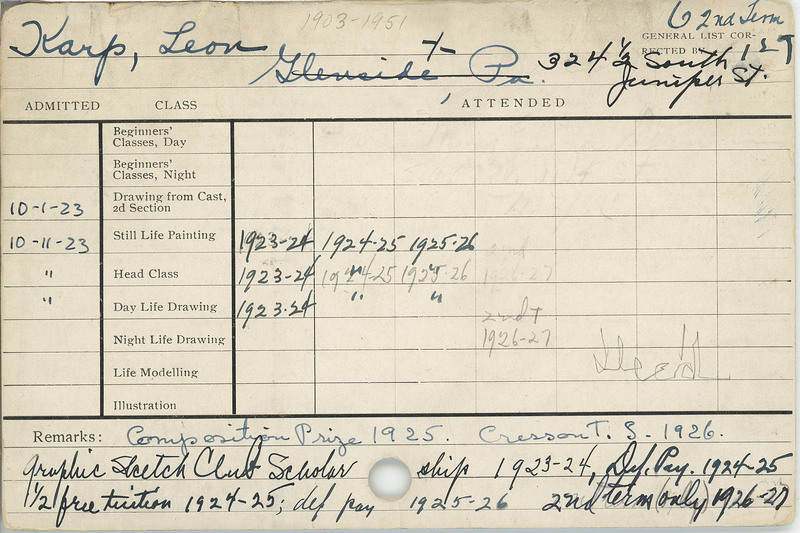 1903-1951
6 2nd Term
Karp, Leon
GENERAL LIST COR-
RECTED BY
Glenside, Pa. 324 1/2 South
Juniper St.
ADMITTED CLASS ATTENDED
Beginners'
Classes, Day
Beginners'
Classes, Night
10-1-23 Drawing from Cast,
2d Section
10-11-23 Still Life Painting 1923-24 1924-25 1925-26 2nd
" Head Class 1923-24 1924-25 " 1925-26 " 1926-27
" Day Life Drawing 1923-24 " "
2nd T
Night Life Drawing 1926-27
Life Modelling
Illustration
Remarks: Composition Prize 1925. Cresson T. S. - 1926.
Graphic Sketch Club Scholar ship 1923-24, Def. Pay. 1924-25
1/2 free tuition 1924-25; def pay 1925-26 2nd term (only) 1926-27